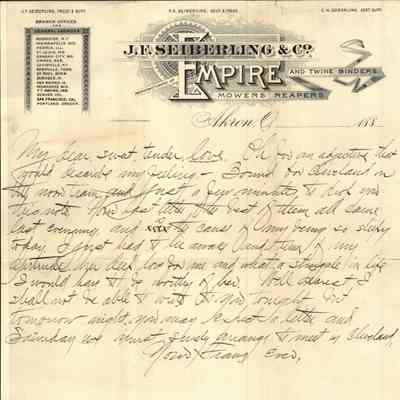 J.F. SEIBERLING, PREST & SUPT.
F.A. SEIBERLING, SECY & TREAS.
C.W. SEIBERLING, ASST SUPT.
BRANCH OFFICES
AND
GENERAL AGENCIES
ROCHESTER, N.Y.
INDIANAPOLIS, IND.
PEORIA, ILL.
ST. LOUIS, MO.
KANSAS CITY, MO.
OMAHA, NEB.
LOUISVILLE, KY.
NASHVILLE, TENN.
ST. PAUL, MINN.
DES MOINES, IA.
MILWAUKEE, WIS.
DENVER, COL.
SAN FRANCISCO, CAL.
PORTLAND, OREGON.
J.F. SEIBERLING & CO.
EMPIRE
AND TWINE BINDERS.
MOWERS REAPERS
Akron, O. 188
My dear, sweet, tender, love. Oh for an adjective that
would describe my feeling - I bound for Cleveland in
the noon train and just a few minutes to
this note. Your last letter the best of them all came
last evening, and the cause of my being so sleepy
today. I just had to lie awake and think of my
her dear love for me and what a struggle in life
I would have to be worthy of her. Well dearest, I
shall not be able to write to you tonight but
tomorrow night, you may expect a letter and
Saturday we must surely arrange to meet in Cleveland.
Your Frank Ever,